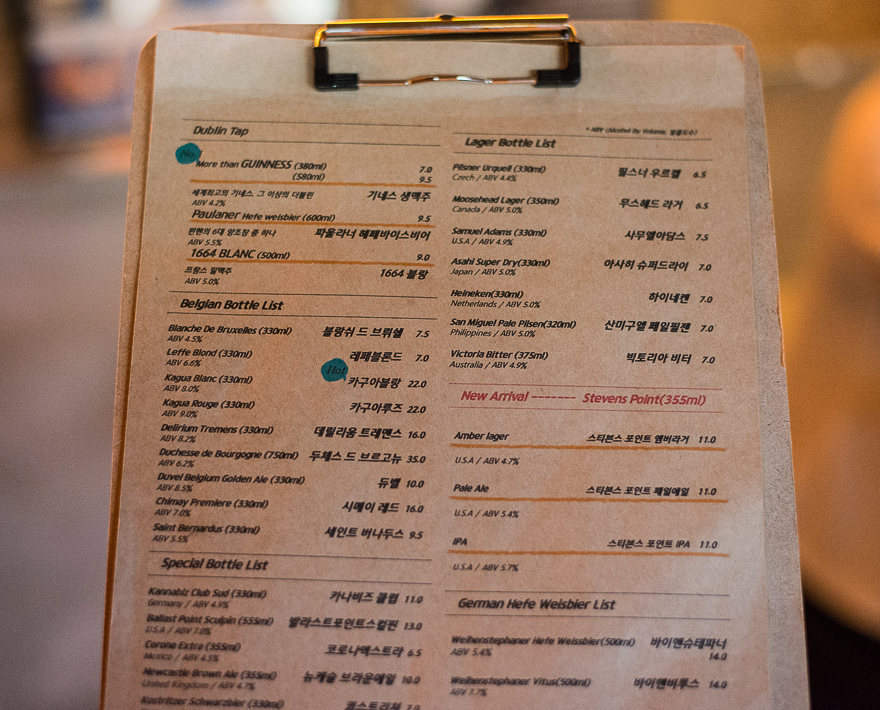 Dublin Tap
No.1
More than GUINNESS (380ml) 7.0
(580ml) 9.5
세계최고의 기네스, 그 이상의 더블린 기네스 생맥주
ABV 4.2%
Paulaner Hefe weisbier (600ml) 9.5
뮌헨의 6대 양조장 중 하나 파울라너 헤페바이스비어
ABV 5.5%
1664 BLANC (500ml) 9.0
프랑스 밀맥주 1664 블랑
ABV 5.0%
Belgian Bottle List
Blanche De Bruxelles (330ml) 블랑쉬 드 브뤼쉘 7.5
ABV 4.5%
Leffe Blond (330ml) 레페블론드 7.0
ABV 6.6%
Hot
Kagua Blanc (330ml) 카구아블랑 22.0
ABV 8.0%
Kagua Rouge (330ml) 카구아루즈 22.0
ABV 9.0%
Delirium Tremens (330ml) 데릴리움 트레맨스 16.0
ABV 8.2%
Duchesse de Bourgogne (750ml) 두체스 드 브르고뉴 35.0
ABV 6.2%
Duvel Belgium Golden Ale (330ml) 듀벨 10.0
ABV 8.5%
Chimay Premiere (330ml) 시메이 레드 16.0
ABV 7.0%
Saint Bernardus (330ml) 세인트 버나두스 9.5
ABV 5.5%
Special Bottle List
Kannabiz Club Sud (330ml) 카나비즈 클럽 11.0
Germany / ABV 4.9%
Ballast Point Sculpin (555ml) 발라스트포인트스컬핀 13.0
U.S.A / ABV 7.0%
Corona Extra (355ml) 코로나엑스트라 6.5
Mexico / ABV 4.5%
Newcastle Brown Ale (355ml) 뉴캐슬 브라운에일 10.0
United Kingdom / ABV 4.7%
Kostritzer Schwarzbier (330ml) 7.0
* ABV (Alcohol By Volume, 알콜도수)
Lager Bottle List
Pilsner Urquell (330ml) 필스너 우르켈 6.5
Czech / ABV 4.4%
Moosehead Lager (350ml) 무스헤드 라거 6.5
Canada / ABV 5.0%
Samuel Adams (330ml) 사무엘아담스 7.5
U.S.A / ABV 4.9%
Asahi Super Dry(330ml) 아사히 슈퍼드라이 7.0
Japan / ABV 5.0%
Heineken(330ml) 하이네켄 7.0
Netherlands / ABV 5.0%
San Miguel Pale Pilsen(320ml) 산미구엘 페일필젠 7.0
Philippines / ABV 5.0%
Victoria Bitter (375ml) 빅토리아 비터 7.0
Australia / ABV 4.9%
New Arrival -------- Stevens Point(355ml)
Amber lager 스티븐스 포인트 앰버라거 11.0
U.S.A / ABV 4.7%
Pale Ale 스티븐스 포인트 페일에일 11.0
U.S.A / ABV 5.4%
IPA 스티븐스 포인트 IPA 11.0
U.S.A / ABV 5.7%
German Hefe Weisbier List
Weihenstephaner Hefe Weissbier(500ml) 바이엔슈테파너
ABV 5.4% 14.0
Weihenstephaner Vitus(500ml) 바이엔비투스 14.0
ABV 7.7%